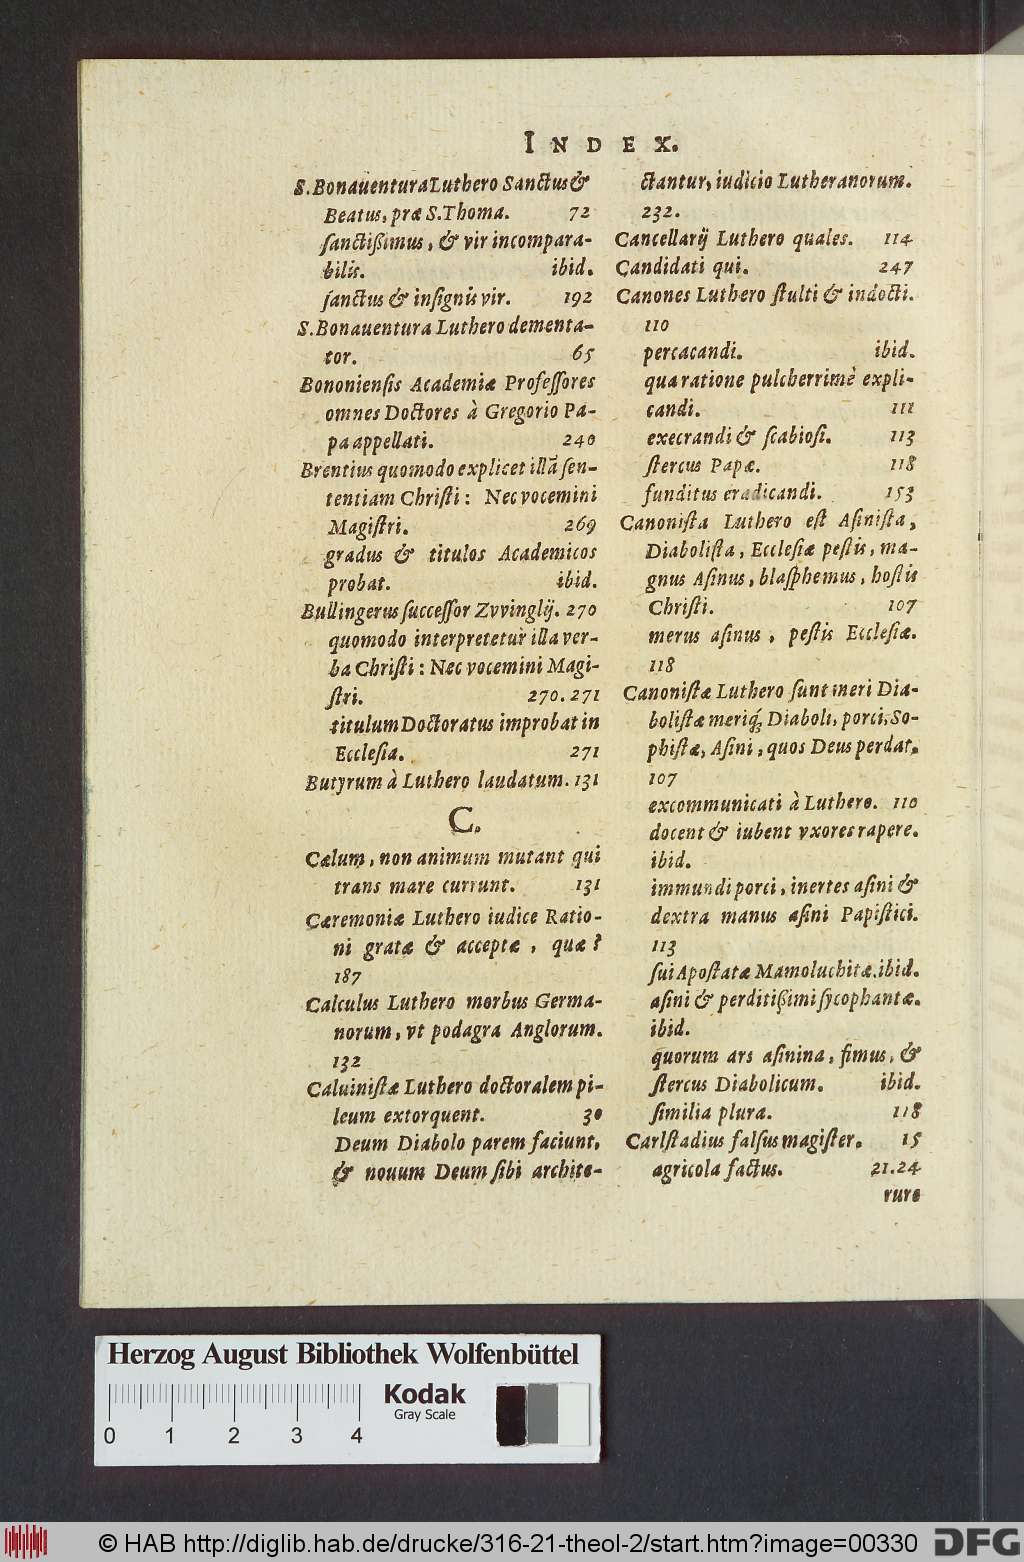 INDEX.
S. Bonauentura Luthero Sanctus &
Beatus, præ S. Thoma. 72
sanctißimus, & vir incompara-
bilis. ibid.
sanctus & insignis vir. 192
S. Bonauentura Luthero dementa-
tor. 65
Bononiensis Academiæ Professores
omnes Doctores à Gregorio Pa-
pa appellati. 240
Brentius quomodo explicet illã sen-
tentiam Christi: Nec vocemini
Magistri. 269
gradus & titulos Academicos
probat. ibid.
Bullingerus successor Zvvinglij. 270
quomodo interpretetur illa ver-
ba Christi: Nec vocemini Magi-
stri. 270. 271
titulum Doctoratus improbat in
Ecclesia. 271
Butyrum à Luthero laudatum. 131
C.
Cælum, non animum mutant qui
trans mare currunt. 131
Cæremoniæ Luthero iudice Ratio-
ni gratæ & acceptæ, quæ?
187
Calculus Luthero morbus Germa-
norum, vt podagra Anglorum.
132
Caluinistæ Luthero doctoralem pi-
leum extorquent. 30
Deum Diabolo parem faciunt,
& nouum Deum sibi archite-
ctantur, iudicio Lutheranorum.
232.
Cancellarij Luthero quales. 114
Candidati qui. 247
Canones Luthero stulti & indocti.
110
percacandi. ibid.
qua ratione pulcherrimè expli-
candi. 111
execrandi & scabiosi. 113
stercus Papæ. 118
funditus eradicandi. 153
Canonista Luthero est Asinista,
Diabolista, Ecclesiæ pestis, ma-
gnus Asinus, blasphemus, hostis
Christi. 107
merus asinus, pestis Ecclesiæ.
118
Canonistæ Luthero sunt meri Dia-
bolistæ meriq́; Diaboli, porci, So-
phistæ, Asini, quos Deus perdat.
107
excommunicati à Luthero. 110
docent & iubent vxores rapere.
ibid.
immundi porci, inertes asini &
dextra manus asini Papistici.
113
sui Apostatæ Mamoluchitæ. ibid.
asini & perditißimi sycophantæ.
ibid.
quorum ars asinina, fimus, &
stercus Diabolicum. ibid.
similia plura. 118
Carlstadius falsus magister. 15
agricola factus. 21. 24
rure
Herzog August Bibliothek Wolfenbüttel
Kodak
Gray Scale
0 1 2 3 4
© HAB http://diglib.hab.de/drucke/316-21-theol-2/start.htm?image=00330
DFG